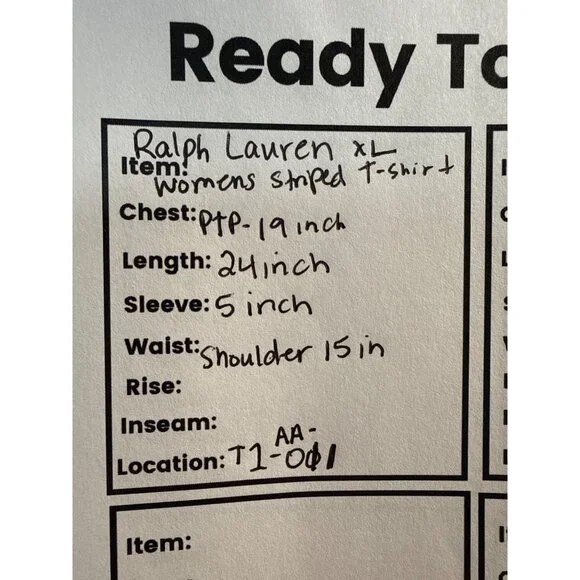 Ready To
Ralph Lauren XL
Item: Womens striped T-shirt
Chest: PtP-19 inch
Length: 24 inch
Sleeve: 5 inch
Waist: Shoulder 15 in
Rise:
Inseam:
AA-
Location: T1-001
Item: